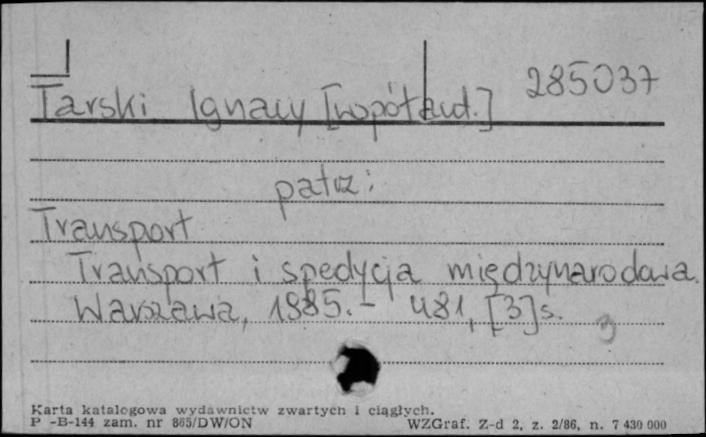 285037
Tarski Ignacy [współaut.]
patrz:
Transport
Transport i spedycja międzynarodowa.
Warszawa, 1985.- 481, [3]s.
3
Karta katalogowa wydawnictw zwartych i ciągłych.
P -B-144 zam. nr 865/DW/ON
WZGraf. Z-d 2, z. 2/86, n. 7 430 000